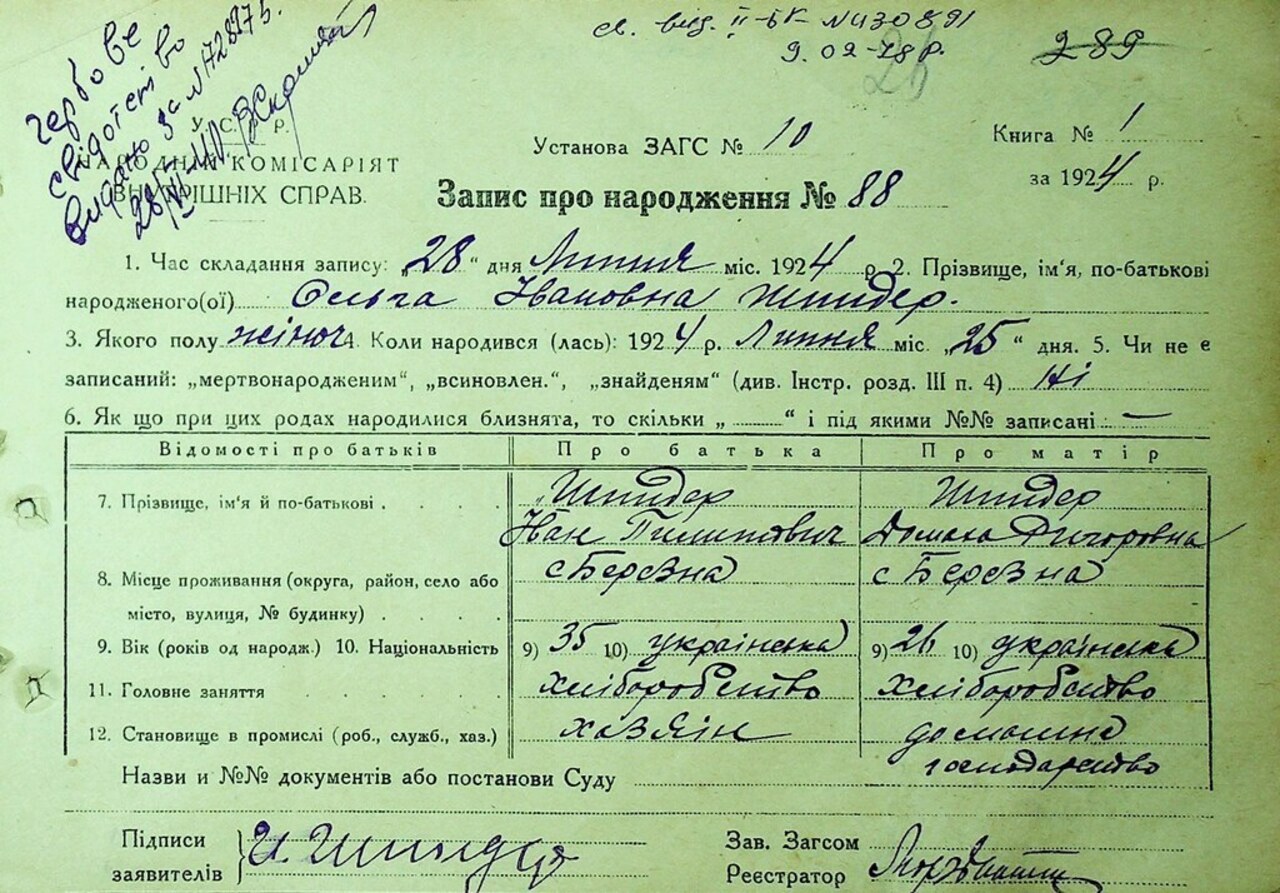 Гербове
свідотство
видано за № 728275.
28/VII-40.
св. вид. II-БК № 430891
9.02-78 р.
26
289
У. С. Р. Р.
НАРОДНІЙ КОМІСАРІЯТ
ВНУТРІШНІХ СПРАВ.
Установа ЗАГС № 10
Книга № 1
за 1924 р.
Запис про народження № 88
1. Час складання запису: „28“ дня Липня міс. 1924 р. 2. Прізвище, ім'я, по-батькові
народженого(ої) Ольга Івановна Шпидер.
3. Якого полу жіноч 4. Коли народився (лась): 1924 р. Липня міс. „25“ дня. 5. Чи не є
записаний: „мертвонародженим“, „всиновлен.“, „знайденям“ (див. Інстр. розд. III п. 4) Ні
6. Як що при цих родах народилися близнята, то скільки „ “ і під якими №№ записані: —
Відомості про батьків Про батька Про матір
7. Прізвище, ім'я й по-батькові Шпидер Шпидер
Іван Пилипович Домаха Григоровна
8. Місце проживання (округа, район, село або с Березна с Березна
місто, вулиця, № будинку)
9. Вік (років од народж.) 10. Національність 9) 35 10) українська 9) 26 10) українська
11. Головне заняття хліборобство хліборобство
12. Становище в промислі (роб., служб., хаз.) хазяін домашнє
господарство
Назви и №№ документів або постанови Суду
Підписи
заявителів И. Шпидер
Зав. Загсом
Реєстратор